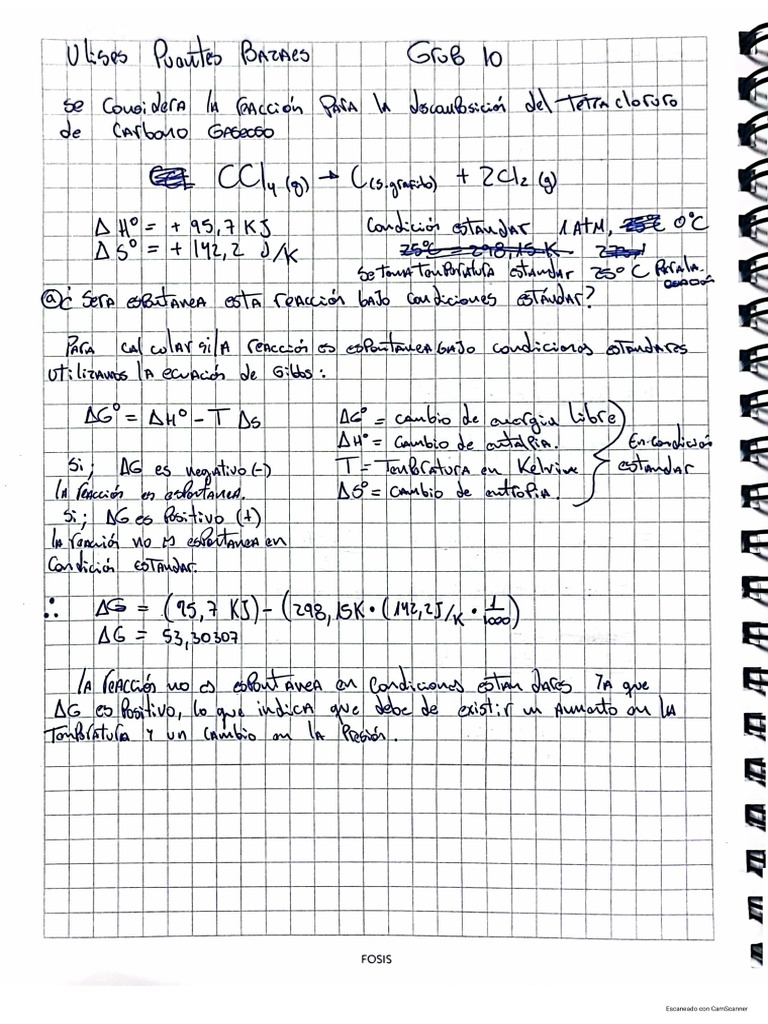 Ulises Puantes Bazaes Grub 10
Se considera la reacción para la descomposición del Tetracloruro
de Carbono Gaseoso
CCl4 (g) → C(s.grafito) + 2Cl2 (g)
ΔH° = + 95,7 KJ Condición estandar 1 ATM, 0°C
ΔS° = + 142,2 J/K 25°C = 298,15 K
Se toma temperatura estandar 25°C para la
ecuación
ⓐ ¿ Sera espontanea esta reacción bajo condiciones estándar?
Para calcular si la reacción es espontanea bajo condiciones estandares
utilizamos la ecuación de Gibbs:
ΔG° = ΔH° - T ΔS ΔG° = cambio de energia libre
ΔH° = cambio de entalpia. En condición
Si; ΔG es negativo (-) T = Temperatura en Kelvin estandar
la reacción es espontanea. ΔS° = cambio de entropia.
Si; ΔG es positivo (+)
la reacción no es espontanea en
Condición estandar.
∴ ΔG = (95,7 KJ) - (298,15K • (142,2J/K • 1/1000)
ΔG = 53,30307
la reacción no es espontanea en condiciones estandares ya que
ΔG es positivo, lo que indica que debe de existir un aumento en la
temperatura y un cambio en la presión.
FOSIS
Escaneado con CamScanner